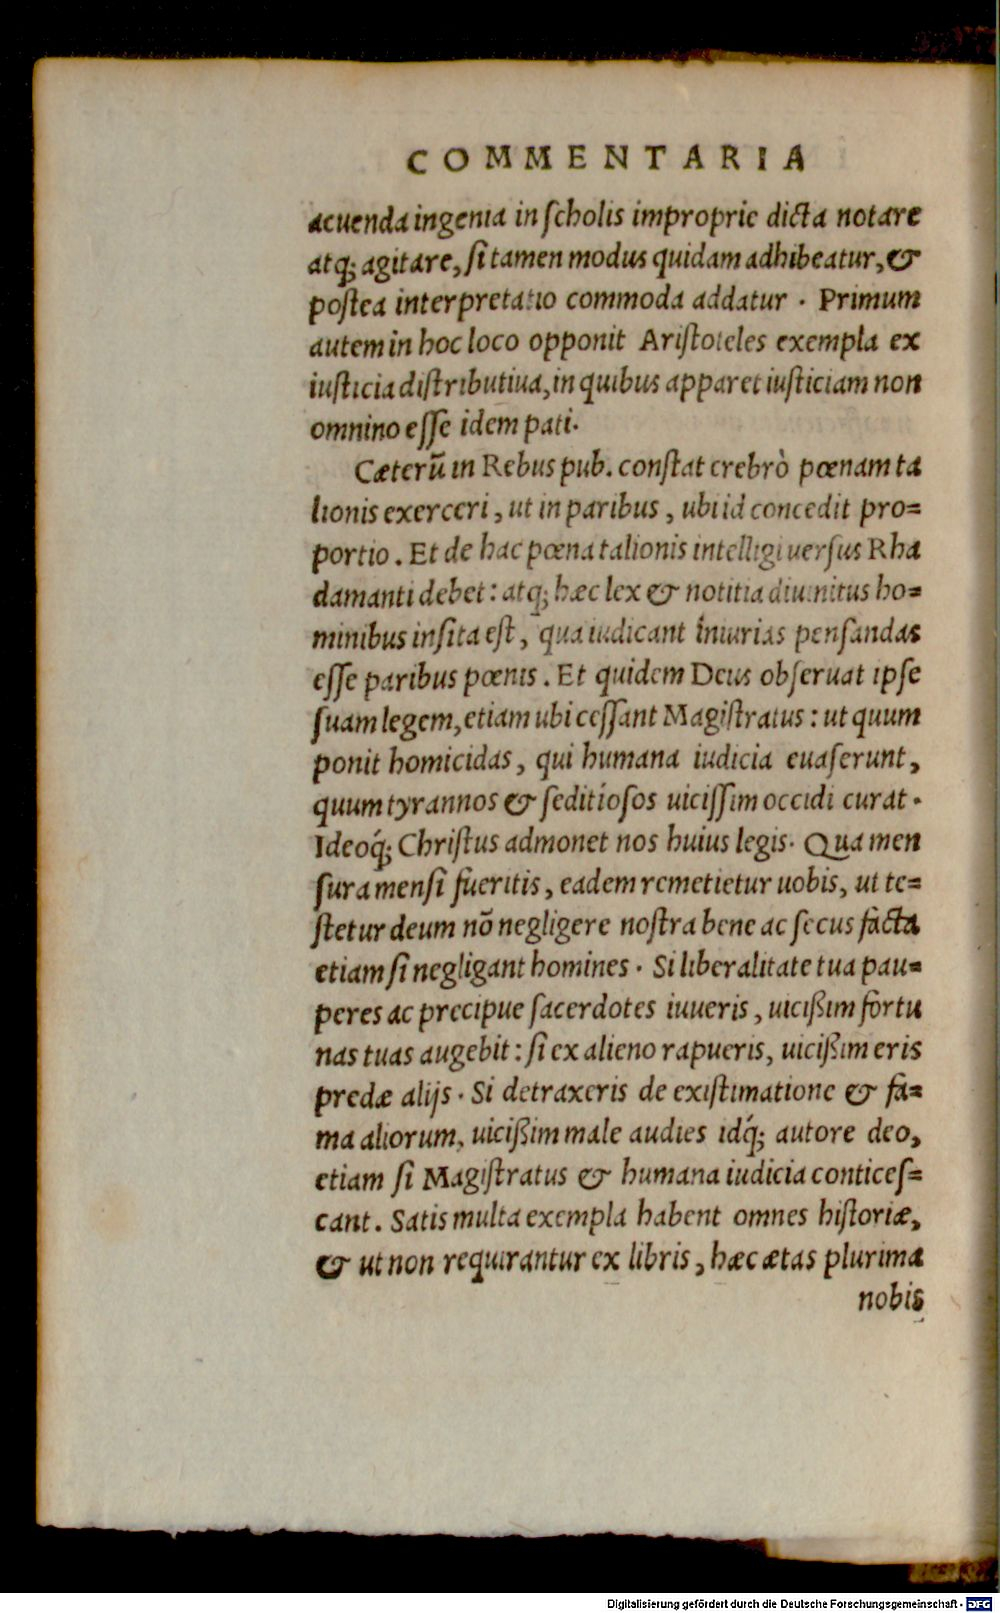 COMMENTARIA
acuenda ingenia in ſcholis improprie dicta notare
atq́; agitare, ſi tamen modus quidam adhibeatur, &
poſtea interpretatio commoda addatur . Primum
autem in hoc loco opponit Ariſtoteles exempla ex
iuſticia diſtributiua, in quibus apparet iuſticiam non
omnino eſſe idem pati.
Cæterũ in Rebus pub. conſtat crebrò pœnam ta
lionis exerceri, ut in paribus, ubi id concedit pro=
portio . Et de hac pœna talionis intelligi uerſus Rha
damanti debet : atq; hæc lex & notitia diuinitus ho=
minibus inſita eſt, qua iudicant iniurias penſandas
eſſe paribus pœnis . Et quidem Deus obſeruat ipſe
ſuam legem, etiam ubi ceſſant Magiſtratus : ut quum
ponit homicidas, qui humana iudicia euaſerunt,
quum tyrannos & ſeditioſos uiciſſim occidi curat .
Ideoq́; Chriſtus admonet nos huius legis. Qua men
ſura menſi fueritis, eadem remetietur uobis, ut te=
ſtetur deum nõ negligere noſtra bene ac ſecus facta
etiam ſi negligant homines . Si liberalitate tua pau=
peres ac precipue ſacerdotes iuueris, uicißim fortu
nas tuas augebit : ſi ex alieno rapueris, uicißim eris
predæ alijs . Si detraxeris de exiſtimatione & fa=
ma aliorum, uicißim male audies idq́; autore deo,
etiam ſi Magiſtratus & humana iudicia conticeſ=
cant . Satis multa exempla habent omnes hiſtoriæ,
& ut non requirantur ex libris, hæc ætas plurima
nobis
Digitalisierung gefördert durch die Deutsche Forschungsgemeinschaft - DFG